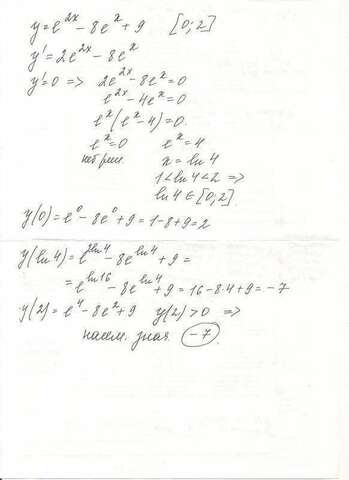 y = e^{2x} - 8e^x + 9 [0; 2]
y' = 2e^{2x} - 8e^x
y' = 0 => 2e^{2x} - 8e^x = 0
e^{2x} - 4e^x = 0
e^x (e^x - 4) = 0.
e^x = 0 e^x = 4
нет реш. x = ln 4
1 < ln 4 < 2 =>
ln 4 ∈ [0; 2]
y(0) = e^0 - 8e^0 + 9 = 1 - 8 + 9 = 2
y(ln 4) = e^{2ln 4} - 8e^{ln 4} + 9 =
= e^{ln 16} - 8e^{ln 4} + 9 = 16 - 8·4 + 9 = -7
y(2) = e^4 - 8e^2 + 9 y(2) > 0 =>
наим. знач. -7